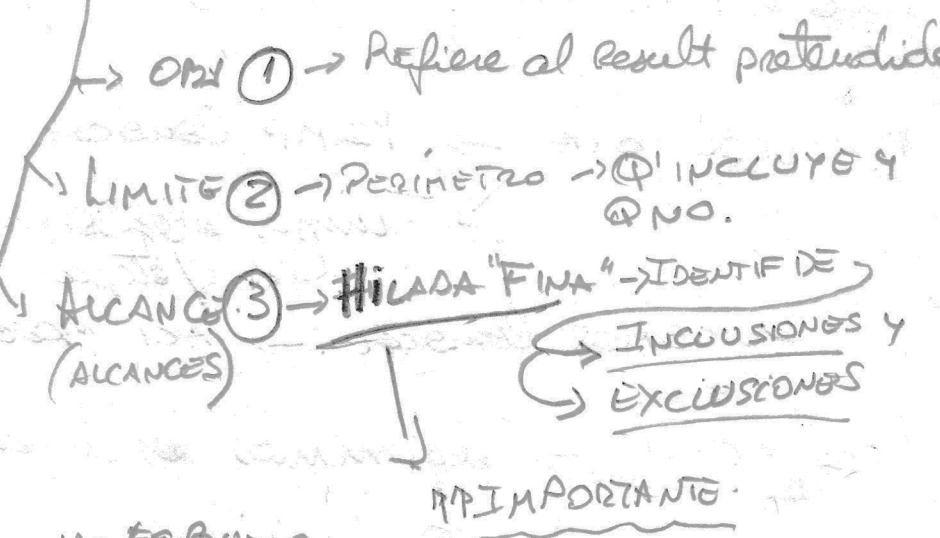 → OBJ ① → Refiere al result pretendido
→ LIMITE ② → PERÍMETRO → Q' INCLUYE Y
Q NO.
→ ALCANCE ③ → HiLADA "FINA" → IDENTIF DE
(ALCANCES)
→ INCLUSIONES Y
→ EXCLUSIONES
IMPORTANTE.